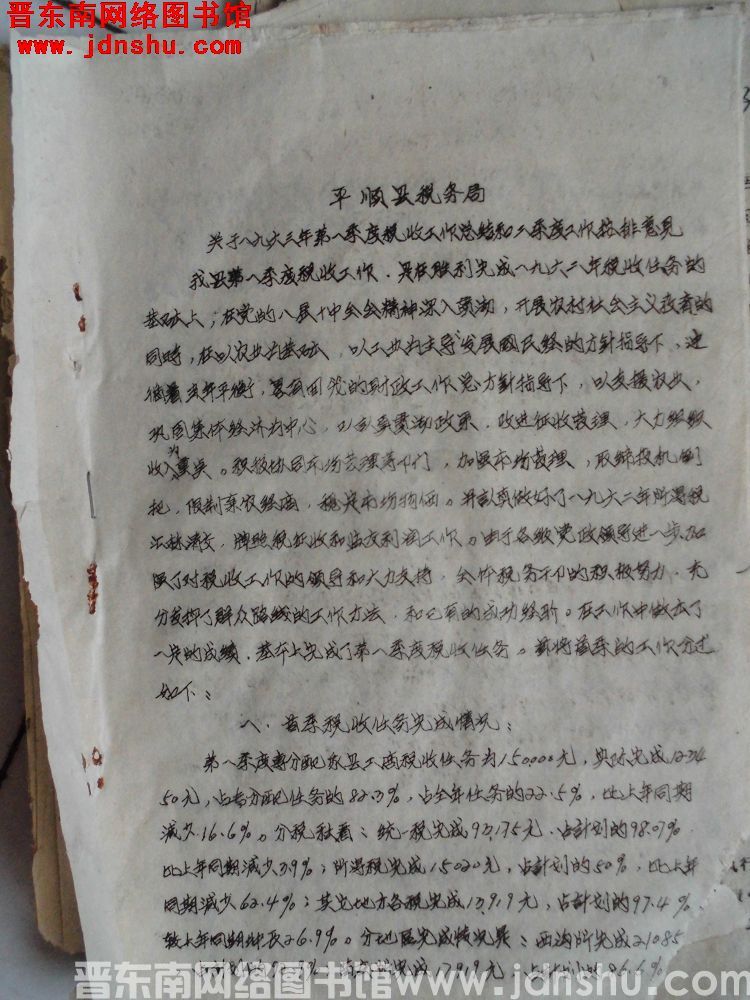 晋东南网络图书馆
www.jdnshu.com
平顺县税务局
关于一九六三年第一季度税收工作总结和二季度工作按排意见
我县第一季度税收工作，是在胜利完成一九六二年税收任务的
基础上；在党的八届十中全会精神深入贯彻，开展农村社会主义教育的
同时，在以农业为基础，以工业为主导发展国民经的方針指导下，
平衡，党的財政工作总方針指导下，以支援农业，
巩固集体经济为中心，以认真贯彻政策，改进征收管理，大力组织
收入为重点。积极协同市场管理等部门，加强市场管理，取締投机倒
把，限制弃农经商，稳定市场物価。并认真做好了一九六二年所得税
汇祘清交，牌照税征收和临交利润工作。由于各级党政领导进一步加
强了对税收工作的领导和大力支持，全体税务干部的积极努力，充
分发揮了群众路线的工作方法，和已有的成功经验。在工作中做出了
一定的成绩，基本上完成了第一季度税收任务。兹将首季的工作分述
如下：
一、首季税收任务完成情况：
第一季度专分配我县工商税收任务为150000元，实际完成1234
50元，占专分配任务的82.3%，占全年任务的22.5%，比上年同期
减少16.6%。分税种看：统一税完成9 175元，占計划的98.07%
比上年同期减少3.9%；所得税完成15020元，占計划的50%，比上年
同期减少62.4%；其它地方各税完成1 919元，占計划的97.4%，
较上年同期增长26.9%。分地区完成情况是：西沟所完成21085
完成17919元，占計划的86.6%
晋东南网络图书馆:www.jdnshu.com